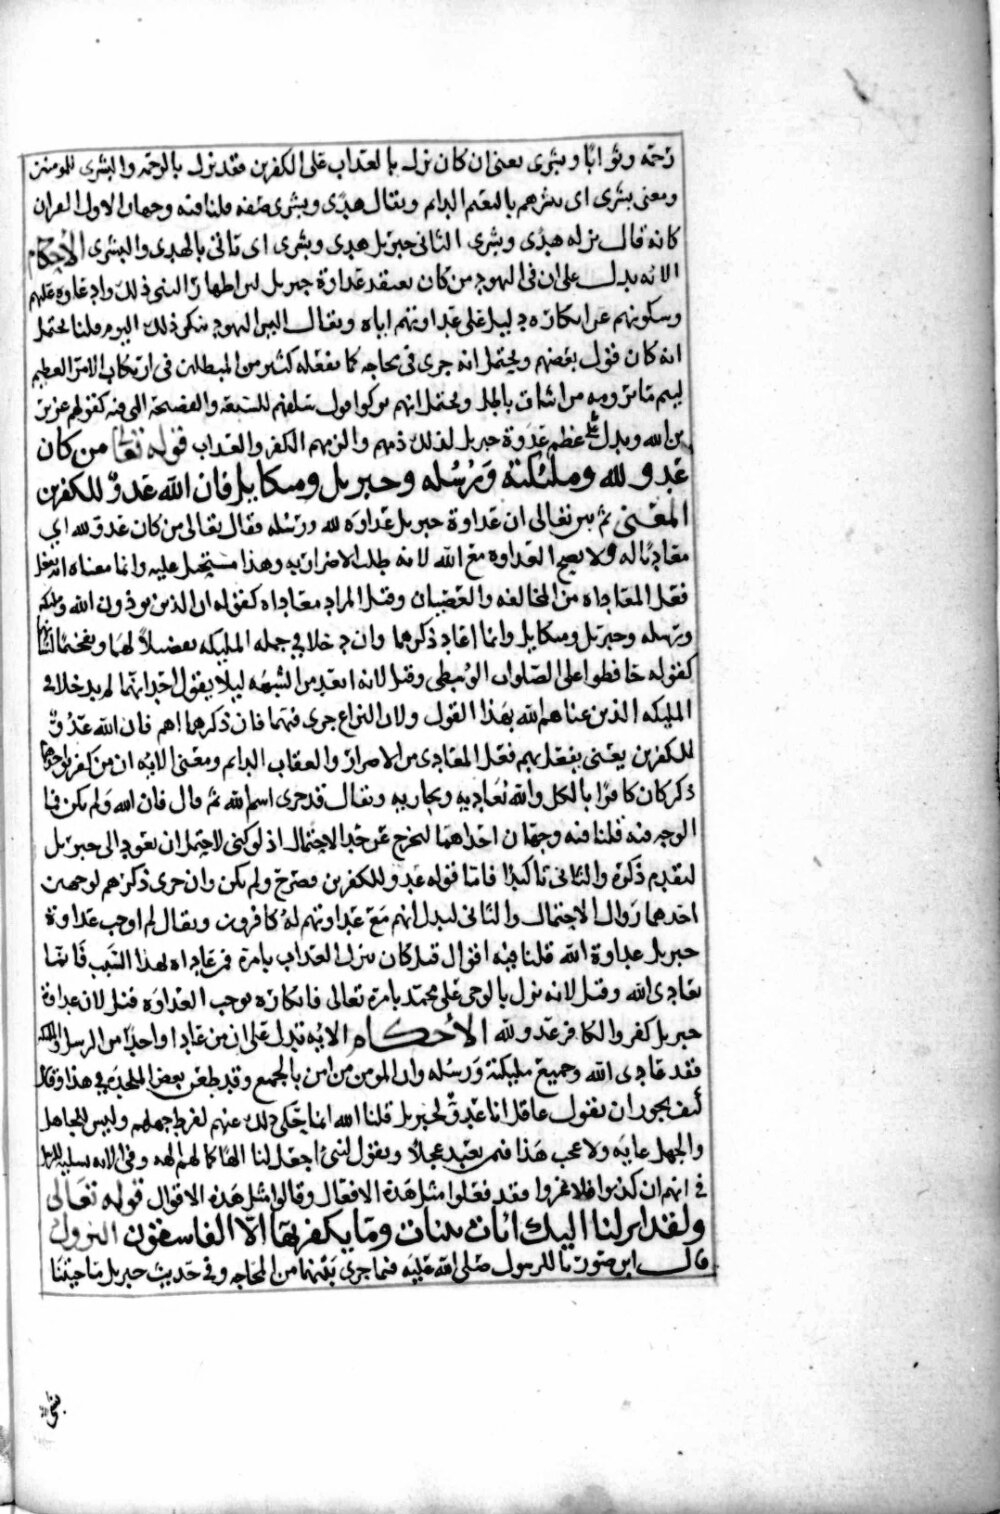 رحمة وثوابا وبشرى يعنى ان كان نزل بالعذاب على الكفرين فقد نزل بالرحمة والبشرى للمومنين
ومعنى بشرى اى بشرهم بالنعيم الدايم ويقال هدى وبشرى صفة قلنا فيه وجهان الاول القران
كانه قال نزله هدى وبشرى الثانى جبريل هدى وبشرى اى تاتى بالهدى والبشرى الأحكام
الايه يدل على ان فى اليهود من كان يعتقد عداوة جبريل لن اظهار النبى ذلك وادعاوه عليهم
وسكوتهم عن انكاره دليل على عداوتهم اياه ويقال اليس اليهود تنكر ذلك اليوم قلنا يحتمل
انه كان قول بعضهم ويحتمل انه جرى فى محاجه كما يفعله كثير من المبطلين فى ارتكاب الامر العظيم
ليتم ما يرومه من اثبات باطل ويحتمل انهم تركوا قول سلفهم للشنعة والفضيحة التى فيه كقولهم عزير
بن الله ويدل على عظم عداوة جبريل لذلك ذمهم والزمهم الكفر والعذاب قوله تعالى من كان
عدو لله وملئكته ورسله وجبريل وميكايل فان الله عدو للكفرين
المعنى ثم بين تعالى ان عداوة جبريل عداوه لله ورسله فقال تعالى من كان عدو لله اى
معاديا له ولا يصح العداوه مع الله لانه طلب الاضرار به وهذا مستحيل عليه وانما معناه انه يفعل
فعل المعاداه من المخالفه والعصيان وقيل المراد معاداه كقوله ان الذين يوذون الله وملئكته
ورسله وجبريل وميكايل وانما اعاد ذكرهما وان دخلا فى جمله المليكه تفضيلا لهما وتفخيما لشانهما
كقوله حافظوا على الصلوات الوسطى وقيل لانه ابعد من الشبهه ليلا يقول احد انهما لم يدخلا فى
المليكه الذين عناهم الله بهذا القول ولان النزاع جرى فيهما فان ذكرهما اهم فان الله عدو
للكفرين يعنى يفعل بهم فعل المعادى من الاضرار والعقاب الدايم ومعنى الايه ان من كفر بواحد مما
ذكر كان كافرا بالكل والله يعاديه ويحاربه ويقال قد جرى اسم الله ثم قال فان الله ولم يكن فما
الوجه فيه قلنا فيه وجهان احداهما ليخرج عن حد الاحتمال اذ لو كنى لاحتمل ان يعود الى جبريل
لتقدم ذكره والثانى تاكيدا فاما قوله عدو للكفرين فصرح ولم يكن وان جرى ذكرهم لوجهين
احدهما زوال الاحتمال والثانى ليدل انهم مع عداوتهم له كافرون ويقال لم اوجب عداوة
جبريل عداوة الله قلنا فيه اقوال قيل كان ينزل العذاب بامره فمن عاداه لهذا السبب فانما
يعادى الله وقيل لانه نزل بالوحى على محمد بامره تعالى فانكاره يوجب العداوه قيل لان عداوة
جبريل كفر والكافر عدو لله الأحكام الايه تدل على ان من عادا واحدا من الرسل والملئكه
فقد عادى الله وجميع مليكته ورسله وان المومن من امن بالجميع وقد طعن بعض الملحدين فى هذا وقال
كيف يجوز ان يقول عاقل انا عدو لجبريل قلنا الله انما حكى ذلك عنهم لفرط جهلهم وليس للجاهل
والجهل غايه ولا عجب هذا فيمن يعبد عجلا ويقول لنبى اجعل لنا الها كما لهم الهه وفى الايه تسليه للرسول
فى انهم ان كذبوا فلا غرو فقد فعلوا مثل هذه الافعال وقالوا مثل هذه الاقوال قوله تعالى
ولقد انزلنا اليك ايات بينات وما يكفر بها الا الفاسقون النزول
قال ابن صوريا للرسول صلى الله عليه فيما جرى بينهما من المحاجه وفى حديث جبريل ما جيتنا
بشى